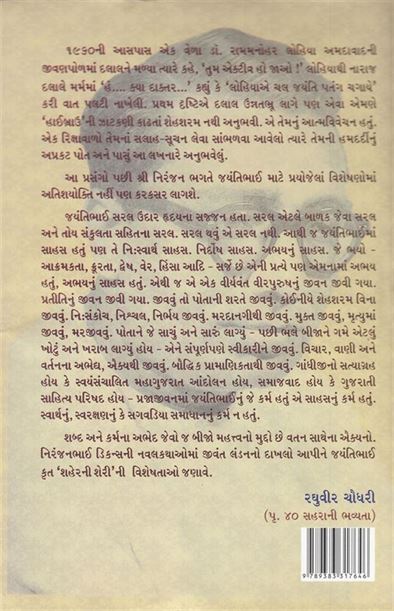 ૧૯૬૦ની આસપાસ એક વેળા ડૉ. રામમનોહર લોહિયા અમદાવાદની
જીવણપોળમાં દલાલને મળ્યા ત્યારે કહે, ‘તુમ એક્ટીવ હો જાઓ !’ લોહિયાથી નારાજ
દલાલે મર્મમાં ‘હેં.... ક્યા દાક્તર...’ કહ્યું કે ‘લોહિયાએ ચલ જયંતિ પતંગ ચગાયે’
કરી વાત પલટી નાખેલી. પ્રથમ દૃષ્ટિએ દલાલ ઉન્નતભ્રૂ લાગે પણ એવા એમણે
‘હાઈબ્રાઉ’ની ઝાટકણી કાઢતાં શેહશરમ નથી અનુભવી. એ તેમનું આત્મવિવેચન હતું.
એક રિક્ષાવાળો તેમનાં સલાહ-સૂચન લેવા સાંભળવા આવેલો ત્યારે તેમની હમદર્દીનું
અપ્રકટ પોત અને પાસું આ લખનારે અનુભવેલું.
આ પ્રસંગો પછી શ્રી નિરંજન ભગતે જયંતિભાઈ માટે પ્રયોજેલાં વિશેષણોમાં
અતિશયોક્તિ નહીં પણ કરકસર લાગશે.
જયંતિભાઈ સરલ ઉદાર હૃદયના સજ્જન હતા. સરલ એટલે બાળક જેવા સરલ
અને તોય સંકુલતા સહિતના સરલ. સરલ થવું એ સરલ નથી. આથી જ જયંતિભાઈમાં
સાહસ હતું પણ તે નિઃસ્વાર્થ સાહસ. નિર્દોષ સાહસ. અભયનું સાહસ. જે ભયો -
આક્રમકતા, ક્રૂરતા, દ્વેષ, વેર, હિંસા આદિ - સર્જે છે એની પ્રત્યે પણ એમનામાં અભય
હતું, અભયનું સાહસ હતું. એથી જ એ એક વીર્યવંત વીરપુરુષનું જીવન જીવી ગયા.
પ્રતીતિનું જીવન જીવી ગયા. જીવવું તો પોતાની શરતે જીવવું. કોઈનીયે શેહશરમ વિના
જીવવું. નિઃસંકોચ, નિશ્ચલ, નિર્ભય જીવવું. મરદાનગીથી જીવવું. મુક્ત જીવવું, મૃત્યુમાં
જીવવું, મરજીવવું. પોતાને જે સાચું અને સારું લાગ્યું - પછી ભલે બીજાને ગમે એટલું
ખોટું અને ખરાબ લાગ્યું હોય - એને સંપૂર્ણપણે સ્વીકારીને જીવવું. વિચાર, વાણી અને
વર્તનના અભેદ, ઐક્યથી જીવવું. બૌદ્ધિક પ્રામાણિકતાથી જીવવું. ગાંધીજીનો સત્યાગ્રહ
હોય કે સ્વયંસંચાલિત મહાગુજરાત આંદોલન હોય, સમાજવાદ હોય કે ગુજરાતી
સાહિત્ય પરિષદ હોય - પ્રજાજીવનમાં જયંતિભાઈનું જે કર્મ હતું એ સાહસનું કર્મ હતું.
સ્વાર્થનું, સ્વરક્ષણનું કે સગવડિયા સમાધાનનું કર્મ ન હતું.
શબ્દ અને કર્મના અભેદ જેવો જ બીજો મહત્ત્વનો મુદ્દો છે વતન સાથેના ઐક્યનો.
નિરંજનભાઈ ડિકન્સની નવલકથાઓમાં જીવંત લંડનનો દાખલો આપીને જયંતિભાઈ
કૃત ‘શહેરની શેરી’ની વિશેષતાઓ જણાવે.
રઘુવીર ચૌધરી
(પૃ. ૪૦ સહરાની ભવ્યતા)
9 789383 317646